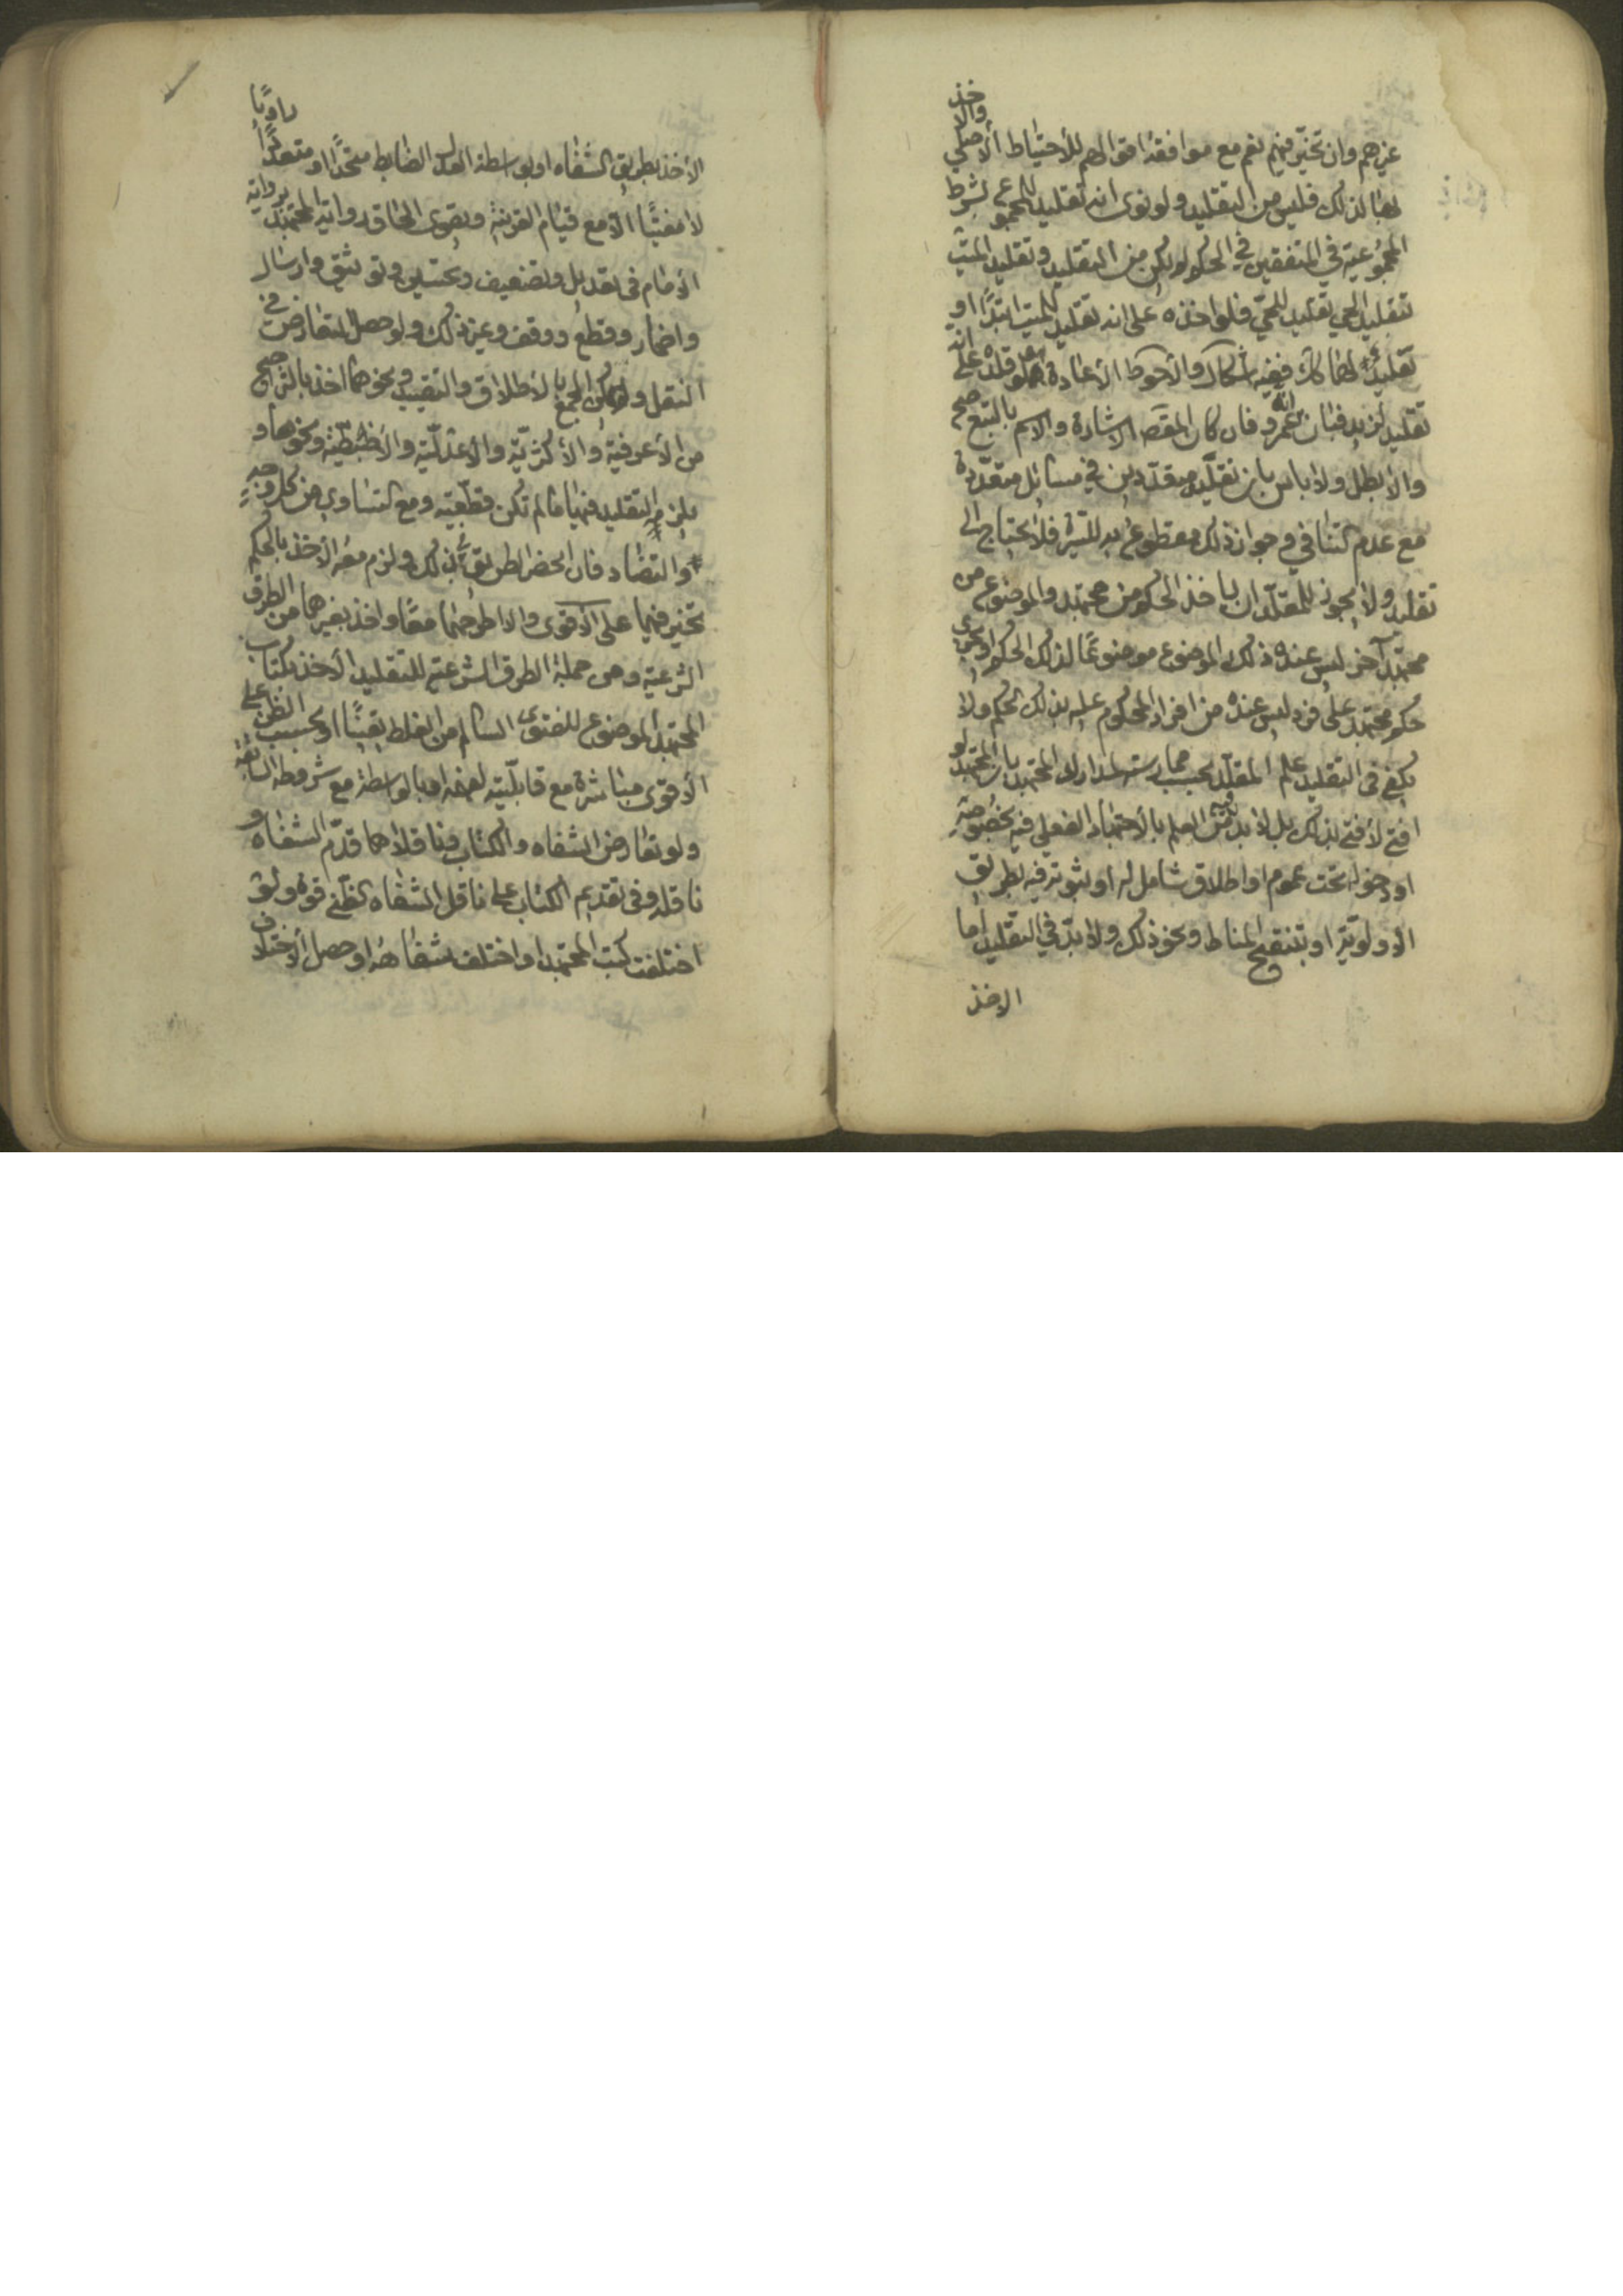 غيرهم وان تخيّر فيهم نعم مع موافقة اقوالهم للأحتياط الأصلي والأخذ
بها لذلك فليس من التقليد ولو نوى انه تقليد للمجموع بشرط
المجموعية في المتفقين في الحكم لم يكن من التقليد وتقليد الميّت
تقليد الحي تقليد للحيّ فلو اخذه على انه تقليد للميت ابتدًا او
تقليد لهما كان ففيه اشكال والأحوط الأعادة ولو قلده على انه
تقليد لزيد فبان انه عمرو فان كان المقصد الاشارة والاسم بالتبع صح
والا بطل ولا باس بان تقليد متعددين في مسائل متعددة
مع عدم التنافي وجواز ذلك مقطوع به للسيرة فلا يحتاج الى
تقليد ولا يجوز للمقلّد ان ياخذ الحكم من مجتهد والموضوع من
مجتهد آخر ليس عنده ذلك الموضوع موضوعًا لذلك الحكم او يجري
حكم مجتهد على فرد ليس عنده من افراد المحكوم عليه بذلك الحكم ولا
يكفي في التقليد علم المقلّد بحسب ممارسته لمدارك المجتهد بان المجتهد لو
افتى لأفتى بذلك بل لا بد فيه من العلم بالأجتهاد الفعلي فيه بخصوصه
او دخوله تحت عموم او اطلاق شامل له او ثبوته فيه بطريق
الاولوية او بتنقيح المناط ونحو ذلك ولا بدّ في التقليد اما
الاخذ
الأخذ بطريق الشفاه او بواسطة العدل الضابط متحدًا او متعددًا راويًا
لا مفتيًا الا مع قيام القرينة ويقوى الحاق رواية المجتهد برواية
الأمام في تعديل وتضعيف وتحسين وتوثيق وارسال
واضمار وقطع ووقف وغير ذلك ولو حصل التعارض في
النقل ولم يمكن الجمع بالأطلاق والتقييد ونحوهما اخذ بالترجيح
من الأعرفية والأكثريّة والأعدليّة والأضبطيّة ونحوها و
يلزم التقليد فيها ما لم تكن قطعيّة ومع التساوي من كل وجه
والتضاد فان انحصر الطريق بذلك ولزم معه الأخذ بالحكم
تخيّر فيهما على الأقوى والا طرحهما معًا واخذ بغيرهما من الطرق
الشرعيّة ومن جملة الطرق الشرعيّة للتقليد الأخذ بكتاب
المجتهد الموضوع للفتوى السالم من الغلط يقينًا او بحسب الظن على
الأقوى مباشرة مع قابليّته لفهمه او بالواسطة مع شروطه السابقة
ولو تعارض الشفاه والكتاب فناقلاهما قدّم الشفاه و
ناقله وفي تقديم الكتاب على ناقل الشفاه لظنّي قوة ولو
اختلفت كتب المجتهد او اختلف شفاهه او حصل الأختلاف